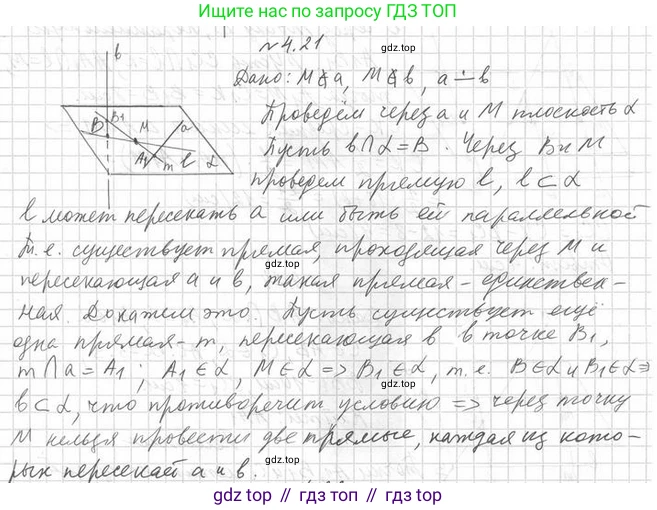 Ищите нас по запросу ГДЗ ТОП
№4.21
gdz.top
Дано: M∉a, M∉b, a∸b
Проведём через a и M плоскость α
Пусть b∩α=B. Через B и M
проведем прямую l, l⊂α
b
B₁
B
M
a
A₁
m
l
α
l может пересекать a или быть ей параллельной
Т.е. существует прямая, проходящая через M и
пересекающая a и b, такая прямая – единствен-
ная. Докажем это. Пусть существует ещё
одна прямая - m, пересекающая b в точке B₁,
m∩a=A₁; A₁∈α, M∈α => B₁∈α, т.е. B∈α и B₁∈α =>
b⊂α, что противоречит условию => через точку
M нельзя провести две прямые, каждая из кото-
рых пересекает a и b.
gdz.top
gdz.top
gdz.top
gdz.top
gdz.top
gdz.top
gdz.top
gdz.top // гдз.топ // gdz top // гдз топ